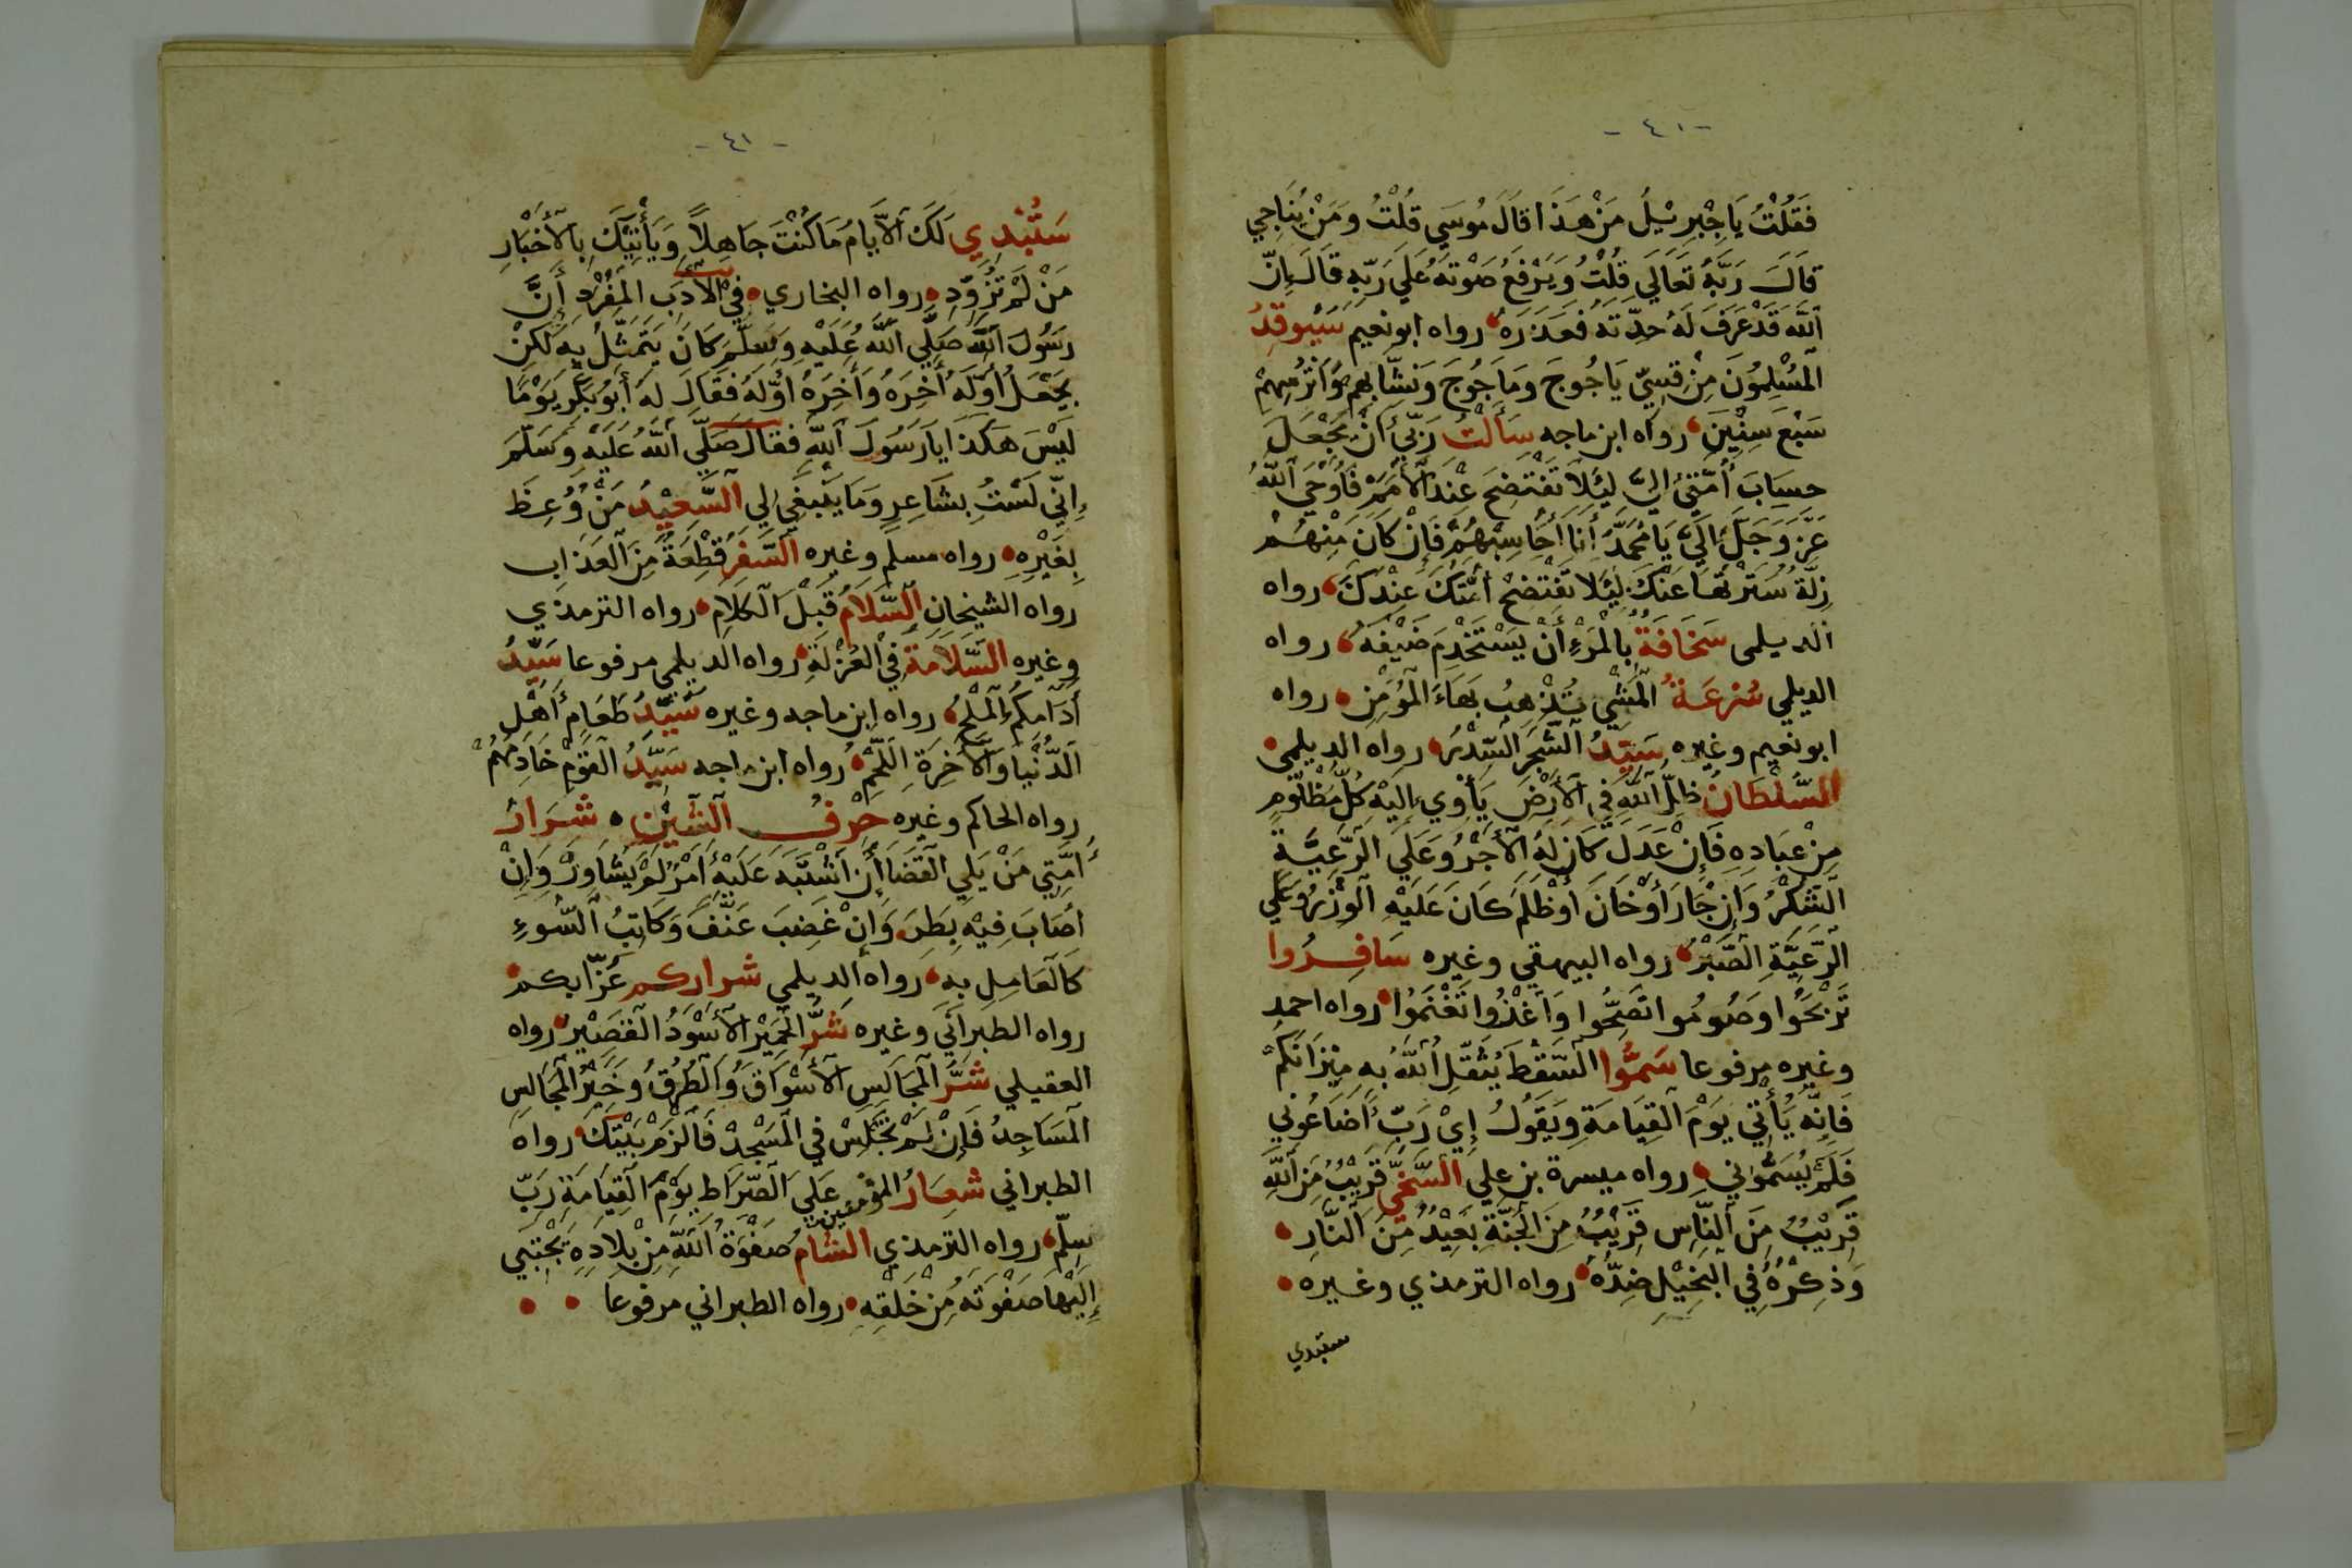 -٤٠-
فَقُلْتُ يَا جِبْرِيْلُ مَنْ هَذَا قَالَ مُوسَي قُلْتُ وَمَنْ يُنَاجِي
قَالَ رَبَّهُ تَعَالَي قُلْتُ وَيَرْفَعُ صَوْتَهُ عَلَي رَبِّهِ قَالَ إِنّ
اللّٰهَ قَدْ عَرَفَ لَهُ حِدّتَهُ فَعَذَرَهُ رواه ابو نعيم سَيُوقِدُ
الْمُسْلِمُوْنَ مِنْ قِسِيّ يَاجُوجَ وَمَاجُوجَ وَنَشَّابِهِمْ وَاَتْرُسِهِمْ
سَبْعَ سِنْيَن رواه ابن ماجه سَأَلْتُ رَبِّي أَنْ يَجْعَلَ
حِسِابَ أُمَّتِي اِلَيَّ لِيَلاَ تَفْتَضِحَ عِنْدَ الْأُمَمِ فَاَوْحَي اللّٰهُ
عَزَّ وَجَلَّ اِلَيَّ يَا مُحَمَّدُ أَنَا أُحَاسِبُهُمْ فَإِنْ كَانَ مِنْهُمْ
زِلَّةُ سَتَرْتُهَا عَنْكَ لِيَلَا تَفْتَضِحْ أُمَّتُكَ عِنْدَكَ رواه
الديلمى سَخَافَةُ بِالْمَرْءِ أَنْ يَسْتَخْدِمَ ضَيْفَهُ رواه
الديلي سُرْعَةُ الْمَشْيِ تُذْهِبُ بَهَاءَ الْمُؤْمِنِ رواه
ابو نعيم وغيره سَيِّدُ الشَّجَرِ السِّدْرُ رواه الديلمى
السُّلْطَانُ ظِلُّ اللّٰهِ فِي الْأَرْضِ يَأْوِي إِلَيْهِ كُلُّ مَظْلُومٍ
مِنْ عِبَادِهِ فَإِنْ عَدَلَ كَانَ لَهُ الْأَجْرُ وَعَلَي الرَّعِيَّةِ
الشُّكْرُ وَإِنْ جَارَ أَوْ خَانَ أَوْ ظَلَمَ كَانَ عَلَيْهِ الْوِزْرُ وَعَلَي
الرَّعِيَّةِ الصَّبْرُ رواه البيهقي وغيره سَافِرُوا
تَرْبَحُوا وَصُومُوا تَصِحُّوا وَاَغْزُوا تَغْنَمُوا رواه احمد
وغيره مرفوعا سَمُّوا السَّقْطَ يُثَقِّلِ اللّٰهُ بِهِ مِيْزَانَكُمْ
فَاِنَّهُ يَأْتِي يَوْمَ الْقِيَامَةِ وَيَقُولُ إِيْ رَبِّ أَضَاعُونِي
فَلَمْ يُسَمُّوْنِي رواه ميسرة بن علي السَّخِيُّ قَرِيْبُ مِنَ اللّٰهِ
قَرِيْبُ مِنَ النَّاسِ قَرِيْبُ مِنَ الْجَنَّةِ بَعِيْدُ مِنَ النَّارِ
وَذِكْرُهُ فِي الْبَخِيْلِ ضِدُّهُ رواه الترمذي وغيره
ستبدي
-٤١-
سَتُبْدِي لَكَ الْأَيَامُ مَا كُنْتَ جَاهِلاً وَيَأْتِيْكَ بِالْأَخْبَارِ
مَنْ لَمْ تُزَوِّدِ رواه البخاري في الأَدَبِ الْمُفْرَدِ أَنَّ
رَسُولَ اللّٰهِ صَلَّي اللّٰهُ عَلَيْهِ وَسَلَّمَ كَانَ يَتَمَثّلُ بِهِ لَكِنْ
يَجْعَلُ أَوّلَهُ أَخِرَهُ وَأَخِرَهُ أَوّلَهُ فَقَالَ لَهُ أَبُو بَكْرٍ يَوْمًا
لَيْسَ هَكَذَا يَا رَسُولَ اللّٰهِ فقال صَلَّي اللّٰهُ عَلَيْهِ وَسَلَّمَ
إِنِّي لَسْتُ بِشَاعِرٍ وَمَا يَنْبَغِي لِي السَّعِيْدُ مَنْ وُعِظَ
بِغَيْرِهِ رواه مسلم وغيره السَّفَرُ قِطْعَةُ مِنَ الْعَذَاب
رواه الشيخان السَّلَامُ قَبْلَ الْكَلَامِ رواه الترمذي
وغيره السَّلَامَةُ فِي الْعُزْلَةِ رواه الديلمى مرفوعا سَيِّدُ
أَدَامِكُمُ الْمِلْحُ رواه ابن ماجه وغيره سَيِّدُ طَعَامِ أَهْلِ
الدُّنْيَا وَالْأَخِرَةِ اللَّحْمُ رواه ابن ماجه سَيِّدُ الْقَوْمِ خَادِمُهُمْ
رواه الحاكم وغيره حَرْفُ الشِّيْن شَرَارُ
أُمَّتِي مَنْ يَلِي الْقَضَا أَنْ اَشْتَبَهَ عَلَيْهِ أَمْرُ لَمْ يُشَاوِرْ وَإِنْ
اَصَابَ فِيْهِ بَطِرَ وَاِنْ غَضِبَ عَنَّفَ وَكَاتِبُ السُّوءِ
كَالْعَامِلِ بِهِ رواه الديلمي شراركم عُزّابكم
رواه الطبراني وغيره شَرُّ الْحَمِيْرِ الْأَسْوَدُ الْقَصِيْرُ رواه
العقيلي شَرُّ الْمَجَالِسِ الْأَسْوَاقُ وَالطُرُقُ وَخَيْرُ الْمَجَالِسِ
الْمَسَاجِدُ فَإِنْ لَمْ تَجْلِسْ فِي الْمَسْجِدْ فَالْزَمْ بَيْتَكَ رواه
الطبراني شعَارُ المؤمنين عَلَي الصِّرَاطِ يَوْمَ الْقِيَامَةِ رَبِّ
سلِّمْ رواه الترمذي الشَامُ صَفْوَةُ اللّٰهِ مِنْ بِلَادِهِ يَجْتَبِي
إِلَيْهَا صَفْوَتَهُ مِنْ خَلْقِهِ رواه الطبراني مرفوعا